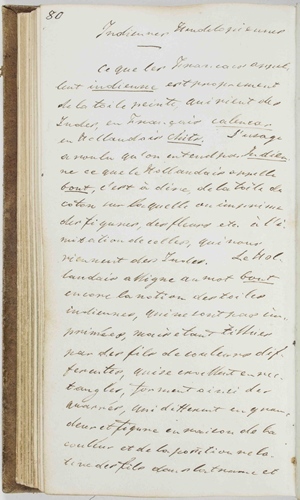 80
Indiennes
Ce que les Français appel-
lent indienne est proprement
de la toile peinte, qui vient des
Indes, en Français calencar
en Hollandais chits. L'usage
a voulu qu'on entend par Indien-
ne ce que le Hollandais appelle
bont, c'est à dire, de la toile de
côton sur laquelle on imprime
des figures, des fleurs etc. à l'i-
mitation de celles, qui nous
viennent des Indes. Le Hol-
landais assigne au mot bont
encore la notion des toiles
indiennes, qui ne sont pas im-
primées, mais étant
par des fils de couleurs dif-
férentes, qui se croisent en rec-
tangles, forment ainsi des
quarrés, qui diffèrent en gran-
deur et figure en raison de la
couleur et de la position rela-
tive des fils dans la trame et